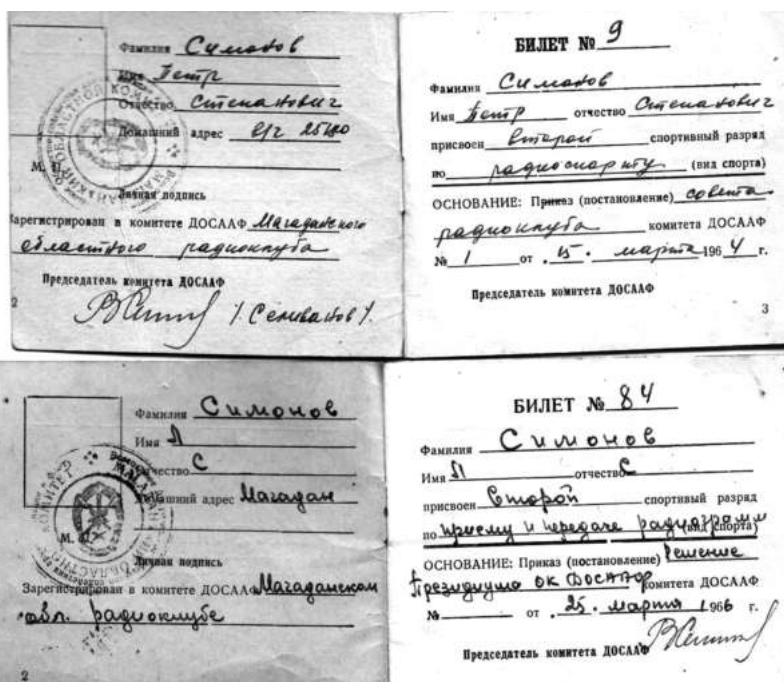 Фамилия Симонов
Имя Петр
Отчество Степанович
Домашний адрес в/ч 25100
М. П.
Личная подпись
Зарегистрирован в комитете ДОСААФ Магаданского
областного радиоклуба
Председатель комитета ДОСААФ
/. Селиванов /.
2
БИЛЕТ № 9
Фамилия Симонов
Имя Петр отчество Степанович
присвоен второй спортивный разряд
по радиоспорту (вид спорта)
ОСНОВАНИЕ: Приказ (постановление) совета
радиоклуба комитета ДОСААФ
№ 1 от . 15 . марта 1964 г.
Председатель комитета ДОСААФ
3
Фамилия Симонов
Имя П
Отчество С
Домашний адрес Магадан
М. П.
Личная подпись
Зарегистрирован в комитете ДОСААФ Магаданском
обл. радиоклубе
2
БИЛЕТ № 84
Фамилия Симонов
Имя П отчество С
присвоен второй спортивный разряд
по приему и передаче радиограмм (вид спорта)
ОСНОВАНИЕ: Приказ (постановление) Решение
Президиума ОК ДОСААФ комитета ДОСААФ
№ от . 25 . марта 1966 г.
Председатель комитета ДОСААФ